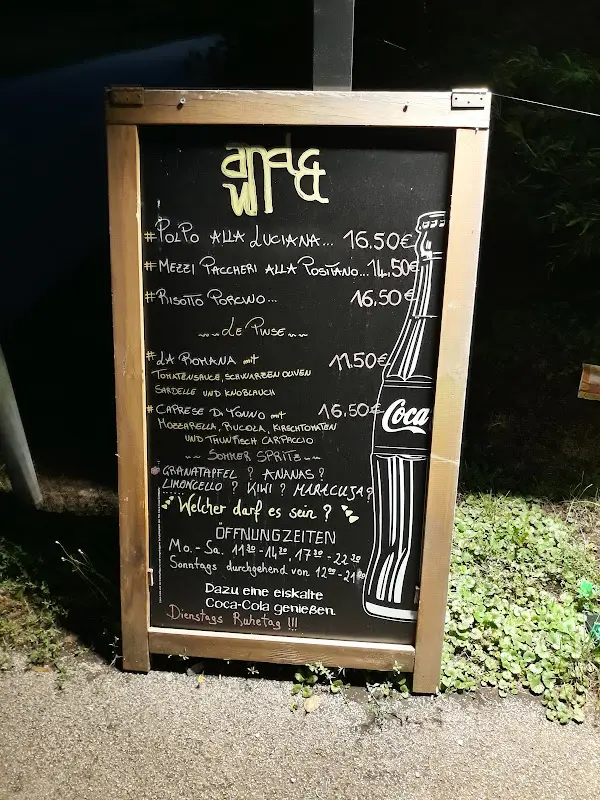 #PolPo alla Luciana... 16.50€
#Mezzi Paccheri alla Positano...14,50€
#Risotto Porcino... 16,50€
~~Le Pinse~~
#La Romana mit 11.50€
Tomatensauce, schwarzen Oliven
Sardelle und Knoblauch
#Caprese Di Tonno mit 16.50€
Mozzarella, Rucola, Kirschtomaten
und Thunfisch Carpaccio
~~ Sommer Spritz ~~
Granatapfel ? Ananas ?
Limoncello ? Kiwi ? Maracuja ?
Welcher darf es sein ?
ÖFFNUNGZEITEN
Mo. - Sa. 11³⁰ - 14³⁰, 17³⁰ - 22³⁰
Sonntags durchgehend von 12⁰⁰ - 21³⁰
Dazu eine eiskalte
Coca-Cola genießen.
Dienstags Ruhetag !!!
Coca